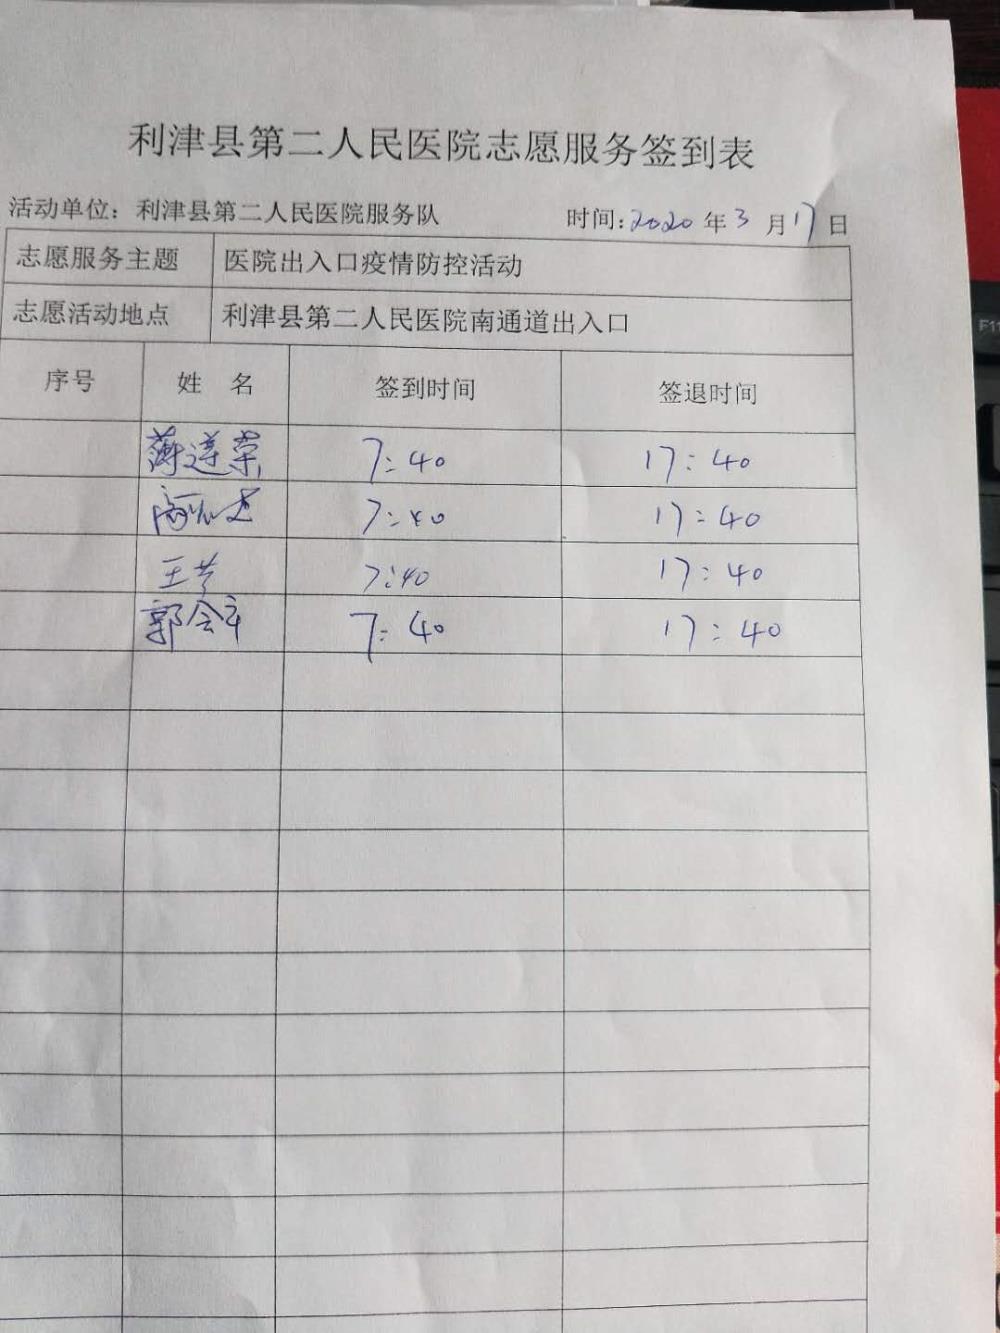 利津县第二人民医院志愿服务签到表
活动单位：利津县第二人民医院服务队 时间：2020年3月17日
志愿服务主题 医院出入口疫情防控活动
志愿活动地点 利津县第二人民医院南通道出入口
序号 姓 名 签到时间 签退时间
薄莲荣 7:40 17:40
7:40 17:40
王芳 7:40 17:40
郭会军 7:40 17:40
F1